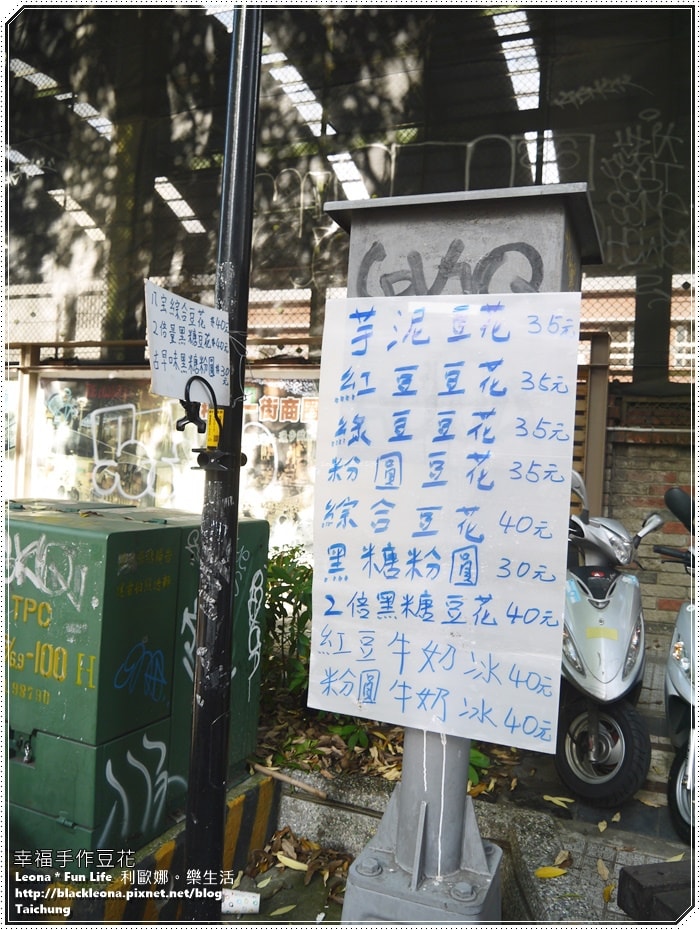 八宝綜合豆花$40元
2倍量黑糖豆花$40元
古早味黑糖粉圓$30元
芋泥豆花 35元
紅豆豆花 35元
綠豆豆花 35元
粉圓豆花 35元
綜合豆花 40元
黑糖粉圓 30元
2倍黑糖豆花 40元
紅豆牛奶冰 40元
粉圓牛奶冰 40元
街商圈
TPC
幸福手作豆花
Leona * Fun Life 利歐娜。樂生活
http://blackleona.pixnet.net/blog
Taichung